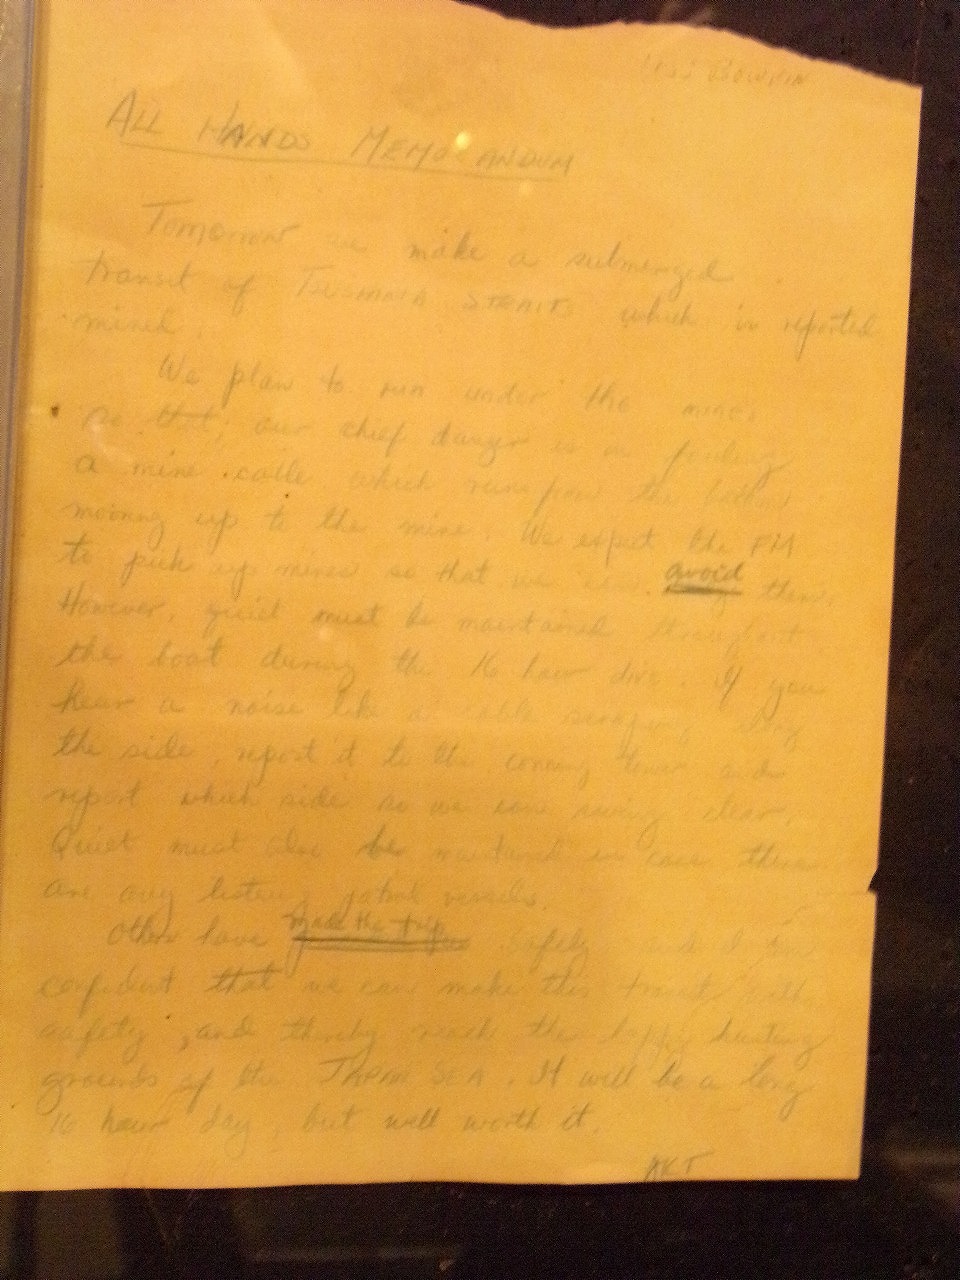 USS BOWFIN
ALL HANDS MEMORANDUM
Tomorrow we make a submerged
transit of TSUSHIMA STRAITS which is reported
mined.
We plan to run under the mines
so that, our chief danger is in
a mine cable which runs from the
mooring up to the mine. We expect the FM
to pick up mines so that we can avoid them.
However, quiet must be maintained throughout
the boat during the 16 hour dive. If you
hear a noise like a cable scraping along
the side, report it to the conning tower and
report which side so we can swing clear.
Quiet must also be maintained in case there
are any listening patrol vessels.
Others have made the trip safely and I am
confident that we can make this transit with
safety, and thereby reach the happy hunting
grounds of the JAPAN SEA. It will be a long
16 hour day, but well worth it.
AKT